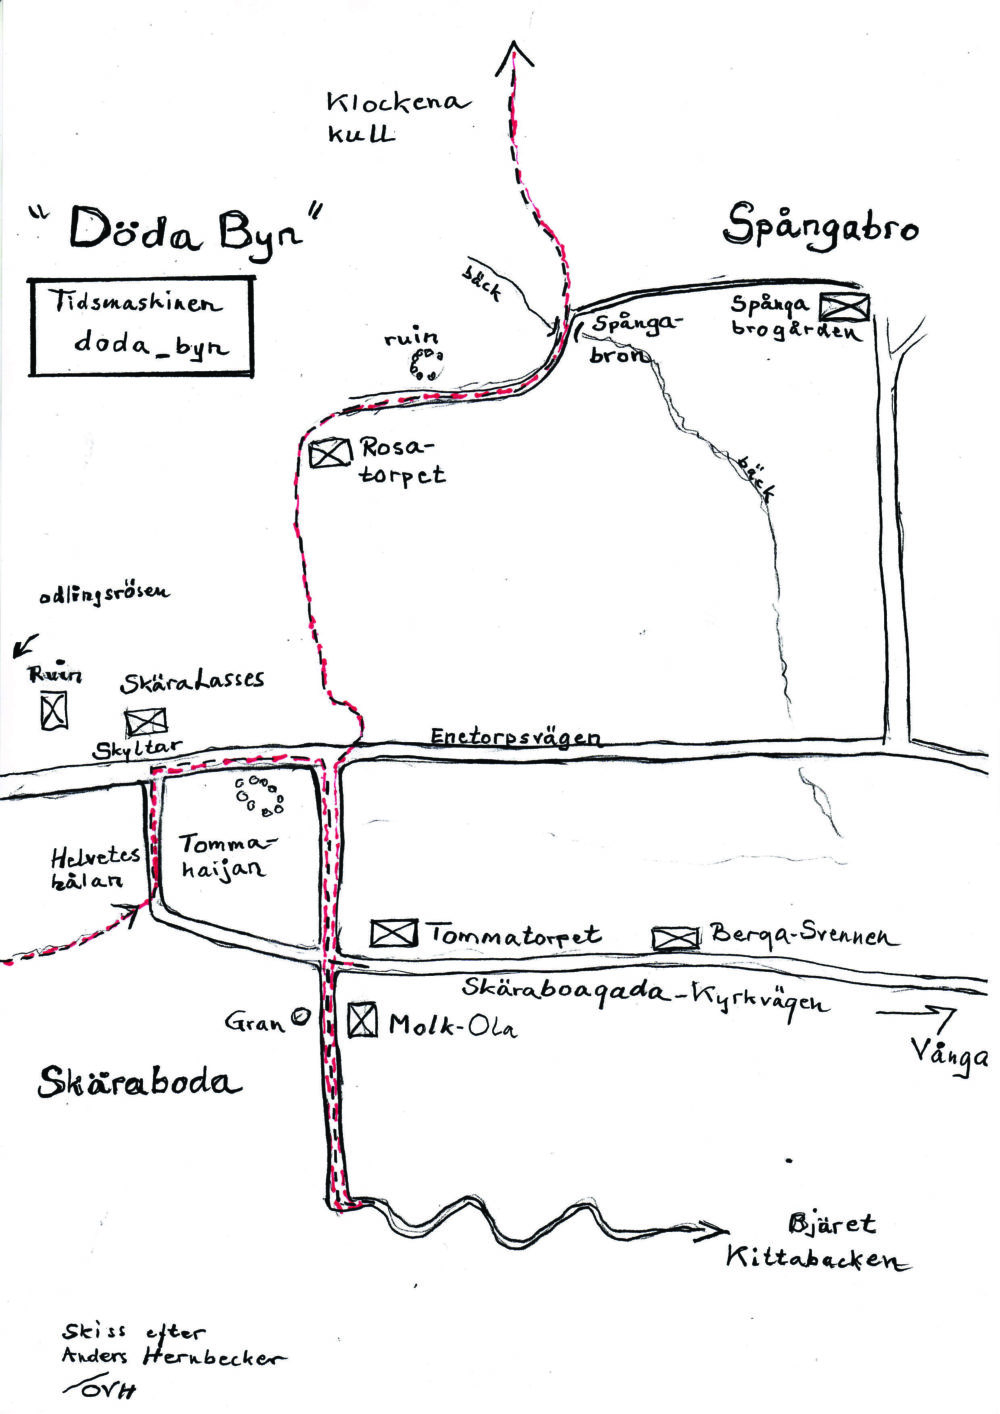 Klockena
kull
"Döda Byn"
Spångabro
Tidsmaskinen
doda_byn
bäck
Spånga
brogården
Spånga-
bron
ruin
Rosa-
torpet
bäck
odlingsrösen
Ruin
SkäraLasses
Skyltar
Enetorpsvägen
Tomma-
haijan
Helvetes
hålan
Tommatorpet
Berga-Svennen
Skäraboagada-Kyrkvägen
Gran
Molk-Ola
Vånga
Skäraboda
Bjäret
Kittabacken
Skiss efter
Anders Hernbecker
/OVH